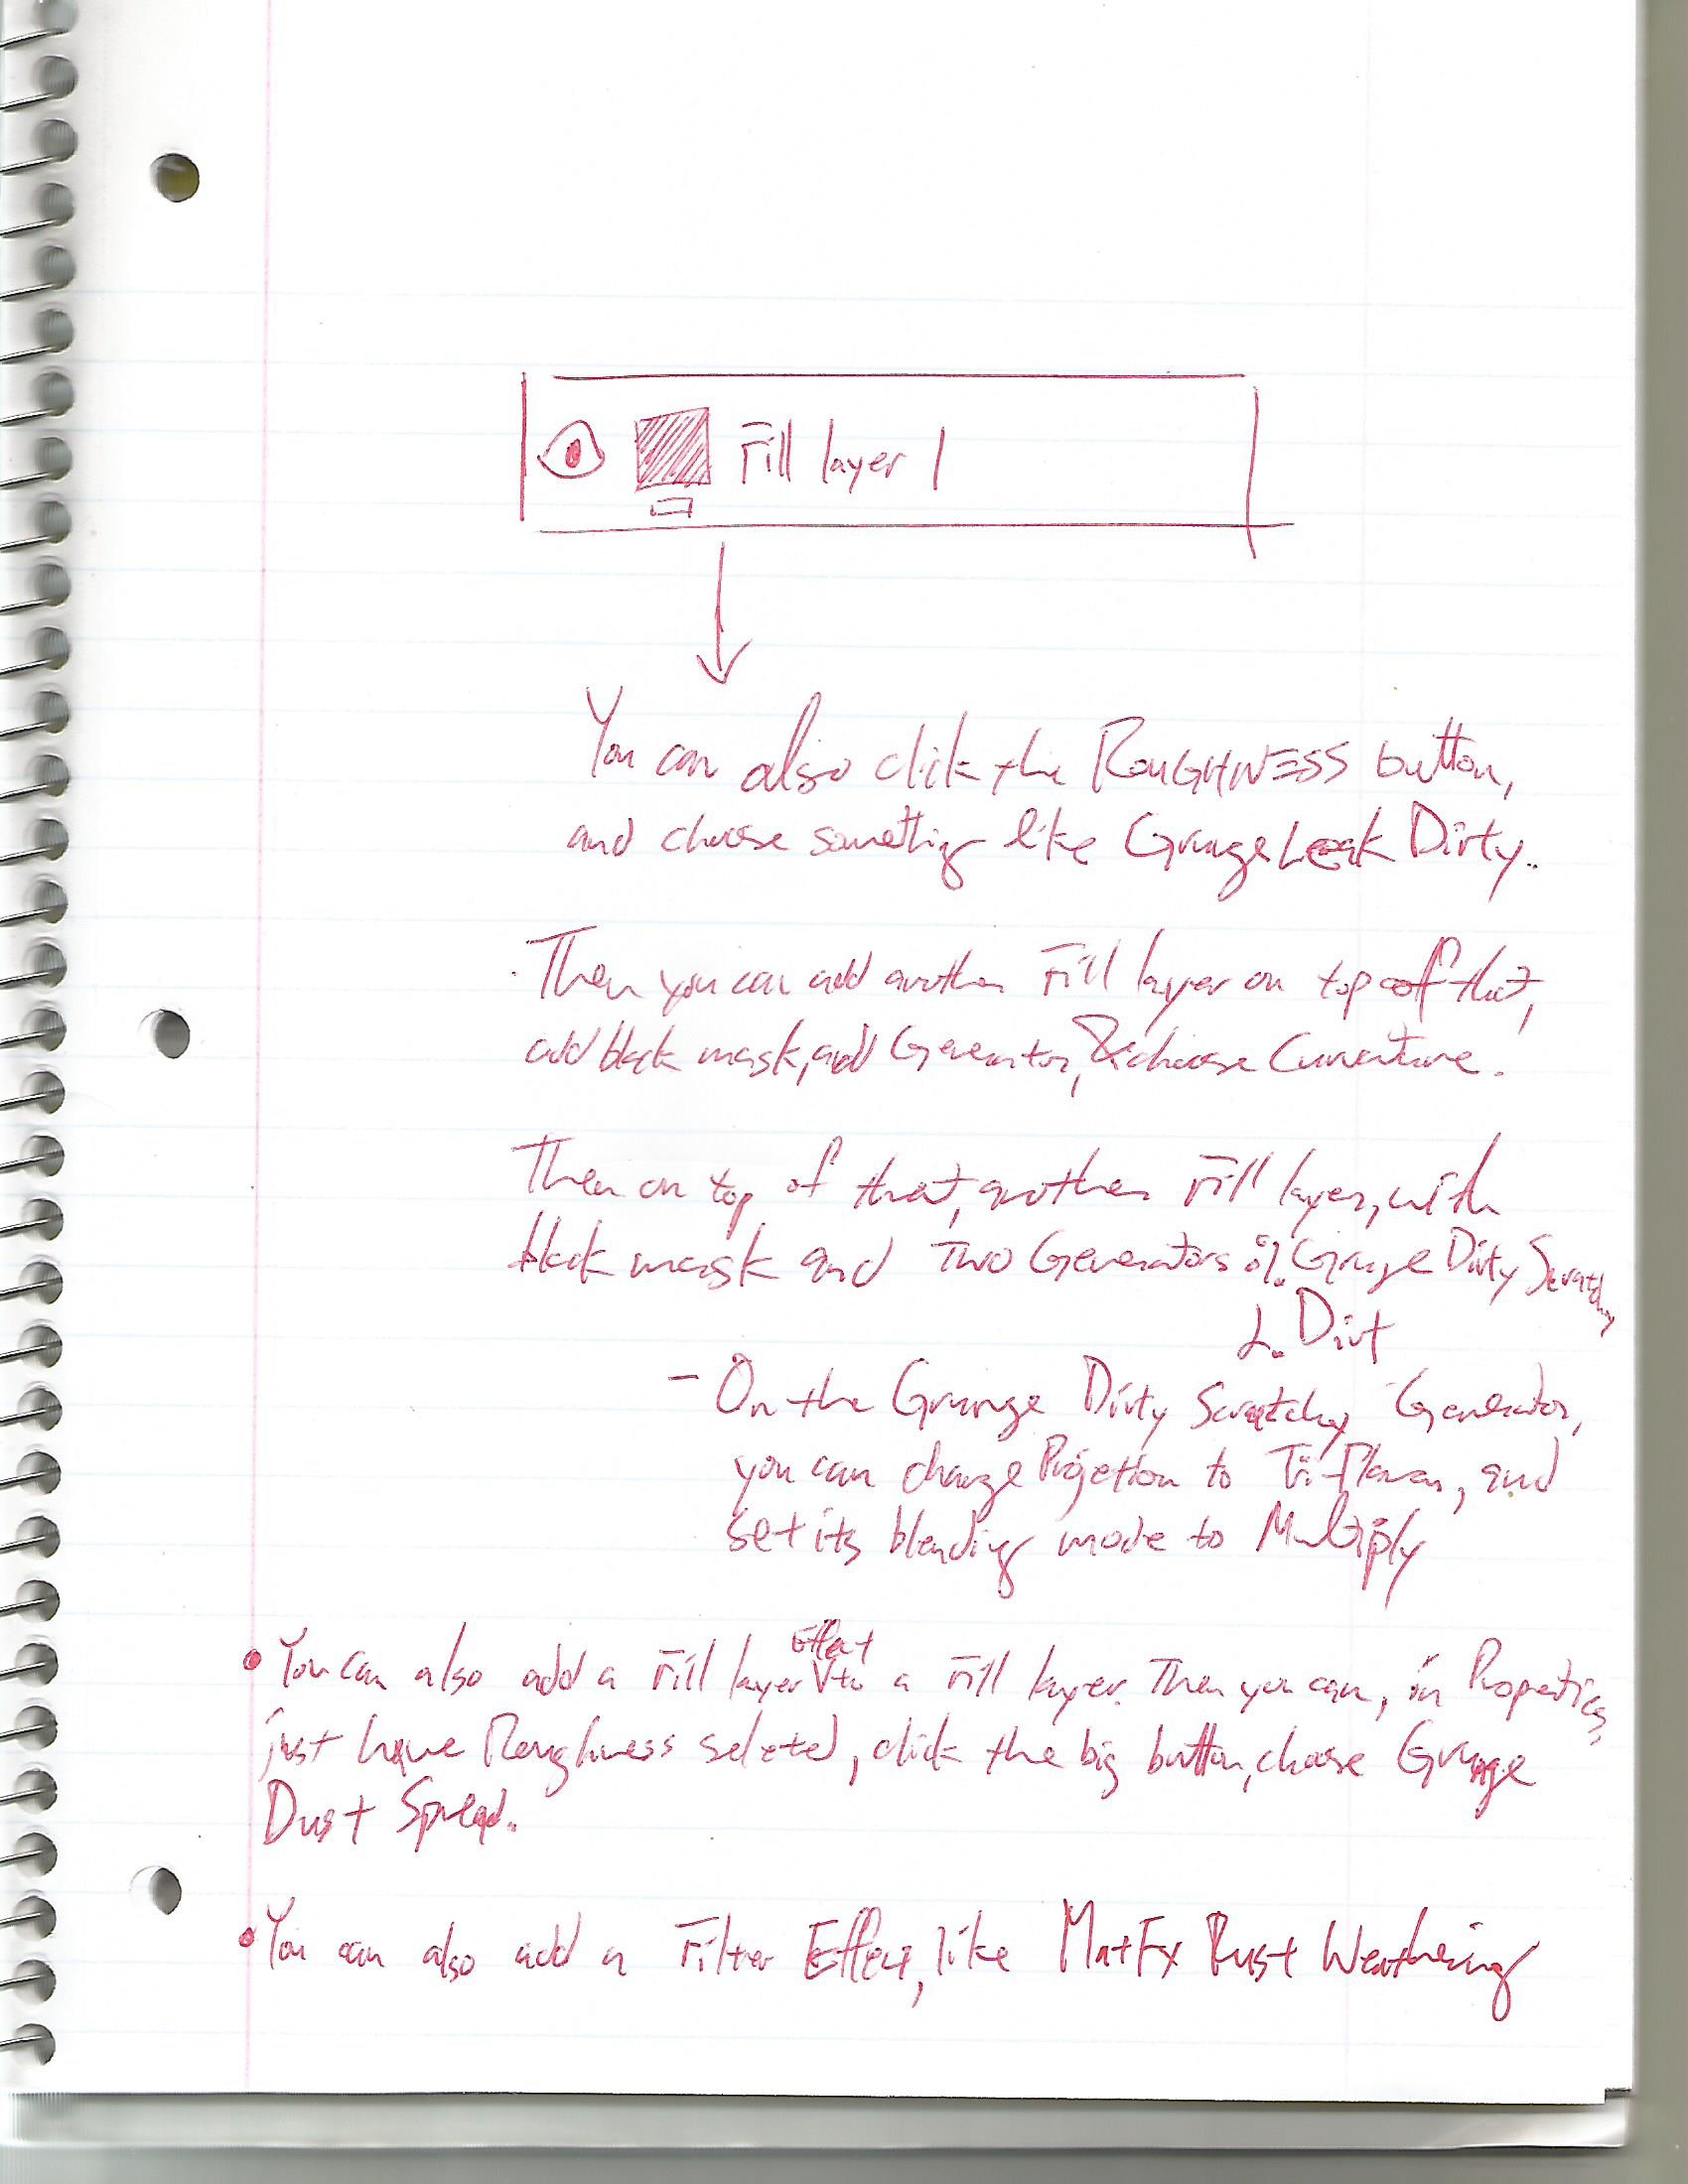 Fill layer 1
You can also click the ROUGHNESS button,
and choose something like Grunge Leak Dirty.
Then you can add another Fill layer on top of that,
add black mask, add Generator, & choose Curvature.
Then on top of that, another Fill layer, with
black mask and Two Generators: 1. Grunge Dirty Scratchy
2. Dirt
- On the Grunge Dirty Scratchy Generator,
you can change Projection to Tri-Planar, and
set its blending mode to Multiply
• You can also add a Fill layer Effect to a Fill layer. Then you can, in Properties,
just have Roughness selected, click the big button, choose Grunge
Dust Spread.
• You can also add a Filter Effect, like MatFx Rust Weathering